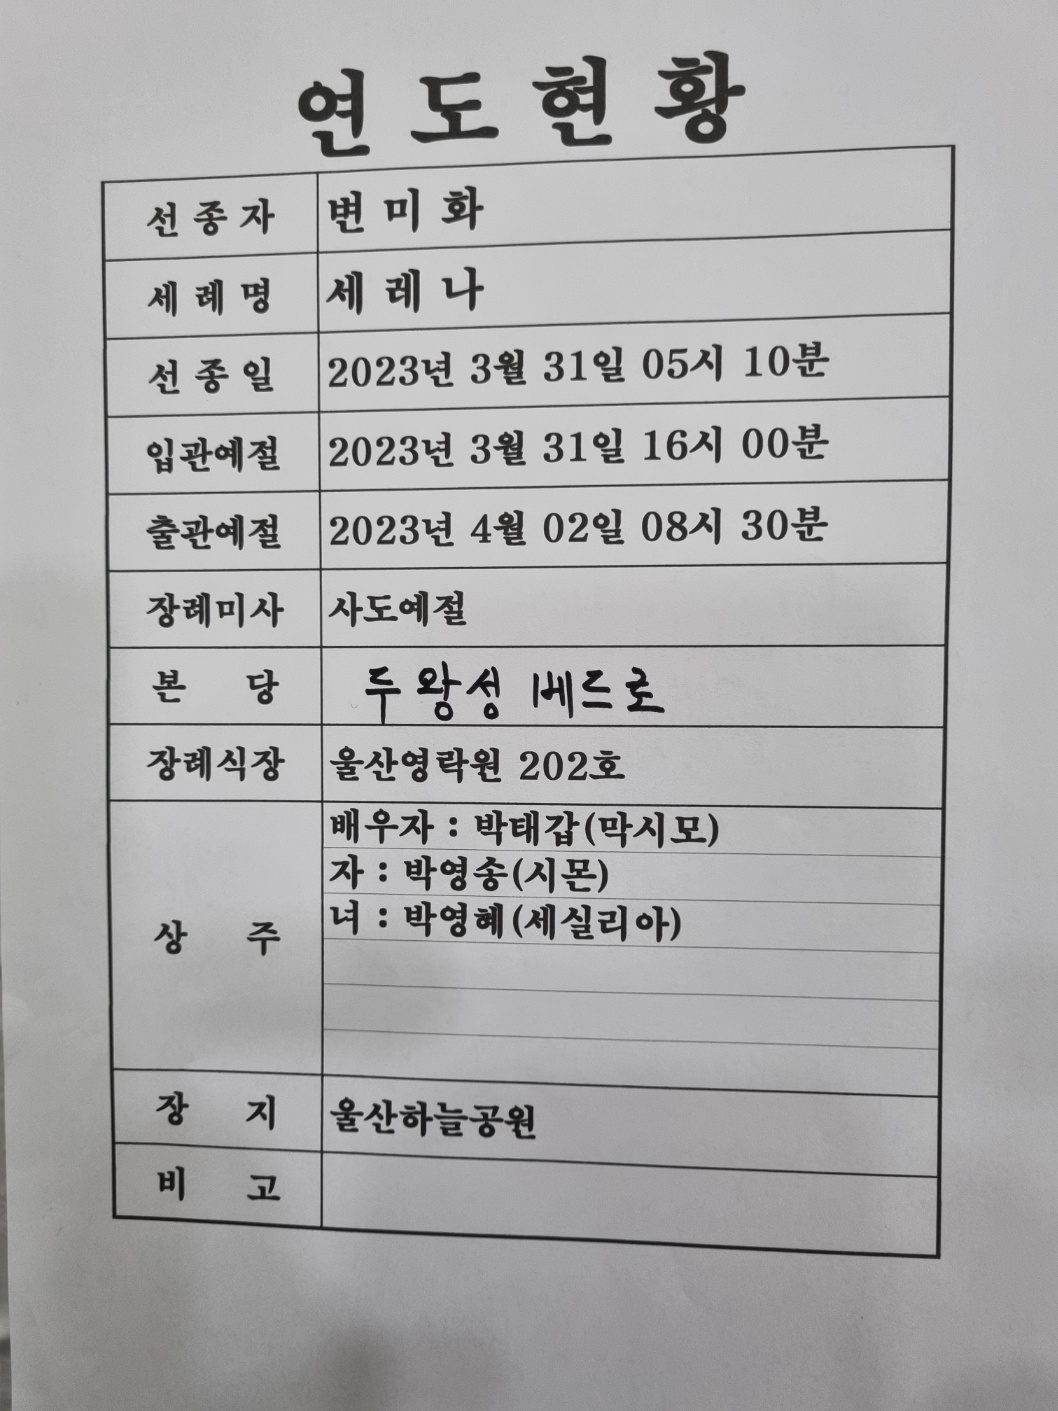 연도현황
선종자 변미화
세례명 세레나
선종일 2023년 3월 31일 05시 10분
입관예절 2023년 3월 31일 16시 00분
출관예절 2023년 4월 02일 08시 30분
장례미사 사도예절
본 당 두왕성 베드로
장례식장 울산영락원 202호
배우자 : 박태갑(막시모)
자 : 박영송(시몬)
상 주 녀 : 박영혜(세실리아)
장 지 울산하늘공원
비 고